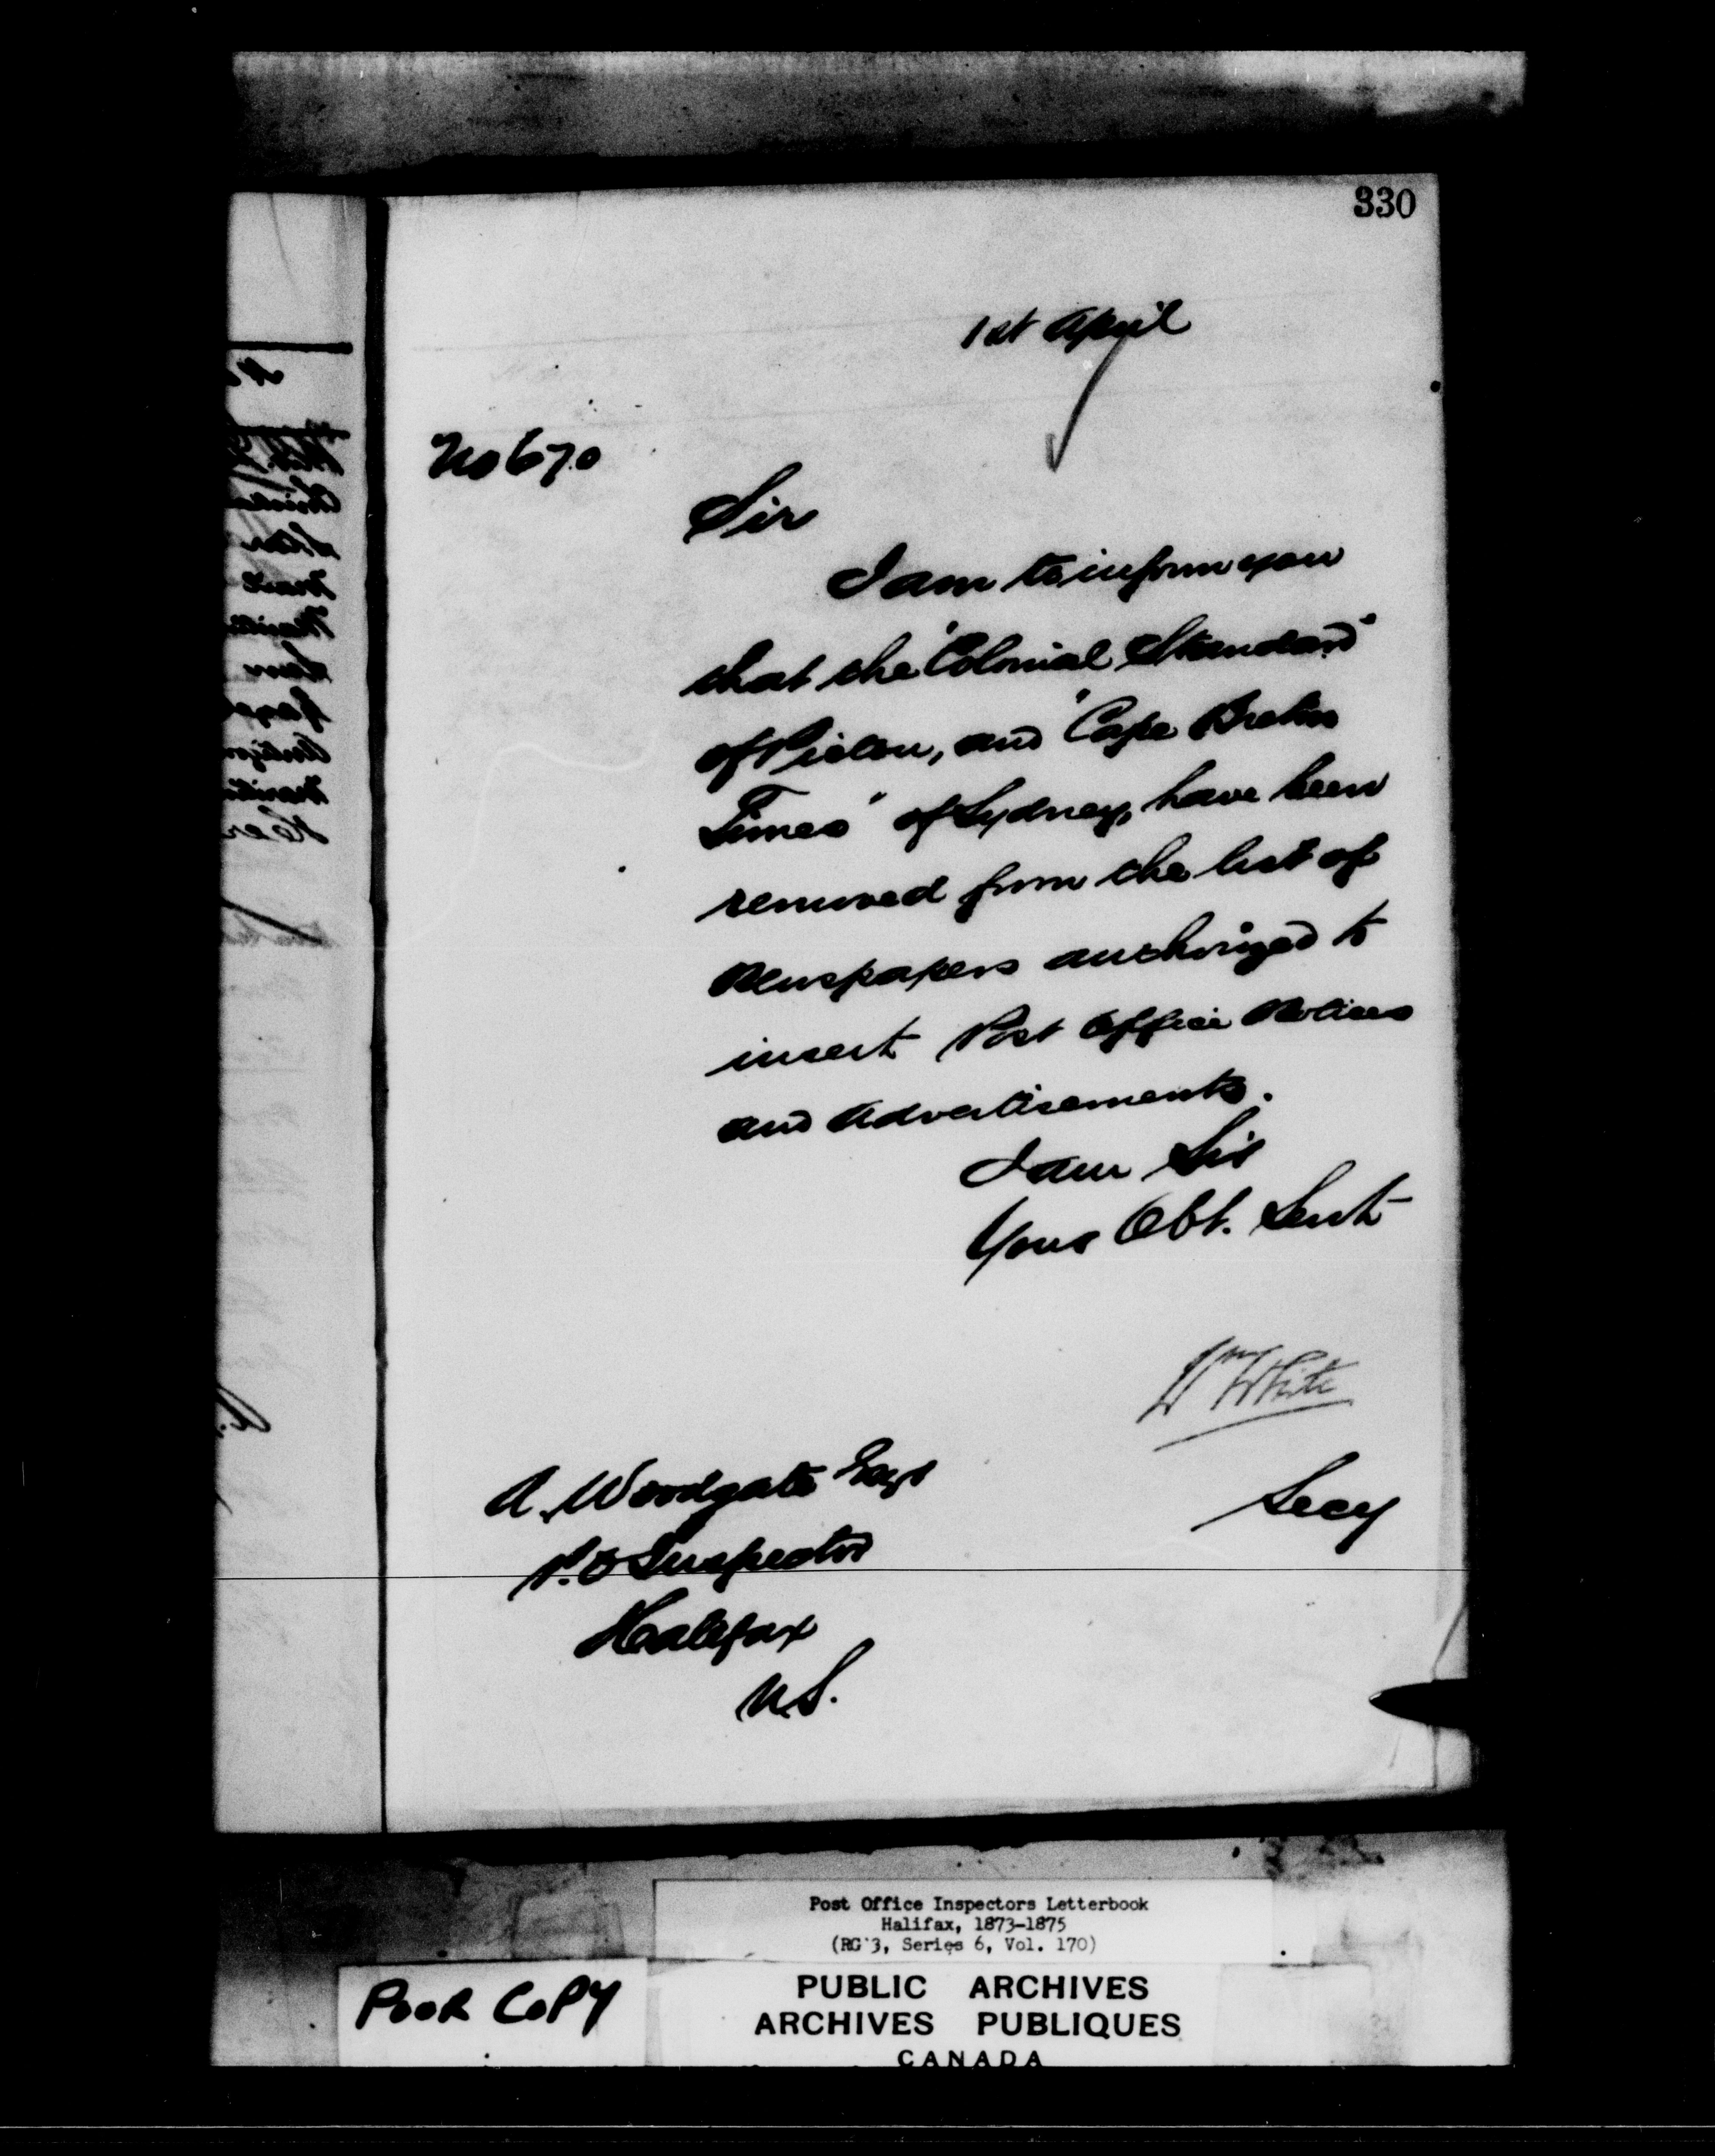 330
1st April
No 670
Sir
I am to inform you
that the "Colonial Standard"
of Pictou, and "Cape Breton
Times" of Sydney, have been
removed from the list of
Newspapers authorized to
insert Post Office Notices
and Advertisements.
I am Sir
Your Obt. Servt
Wm White
Secy
A. Woodgate Esqr
P.O Inspector
Halifax
N.S.
Post Office Inspectors Letterbook
Halifax, 1873-1875
(RG 3, Series 6, Vol. 170)
POOR COPY
PUBLIC ARCHIVES
ARCHIVES PUBLIQUES
CANADA